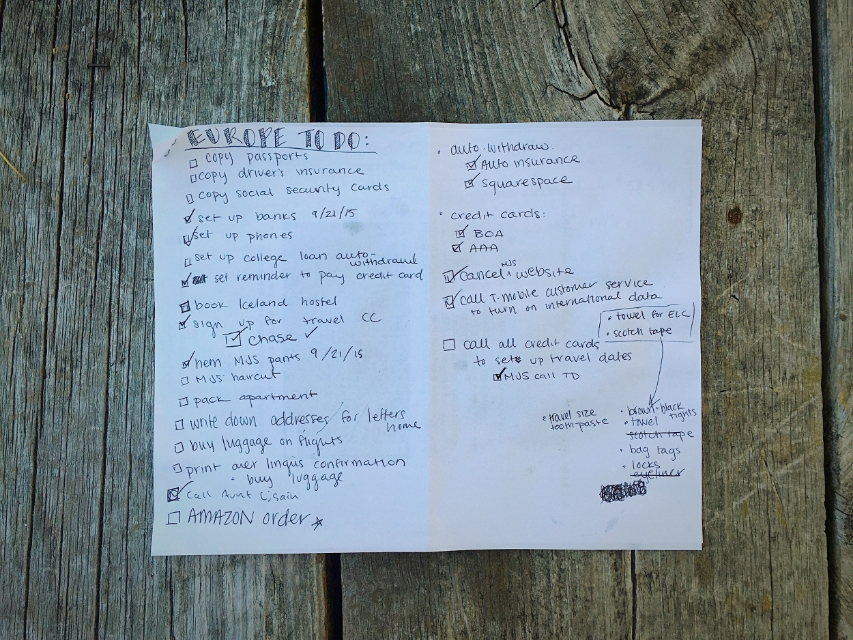 EUROPE TO DO:
copy passports
copy driver's insurance
copy social security cards
set up banks 9/21/15
set up phones
set up college loan auto-
withdrawl
set reminder to pay credit card
book Iceland hostel
sign up for travel CC
Chase ✓
hem MJS pants 9/21/15
MJS haircut
pack apartment
write down addresses for letters
home
buy luggage on flights
print aer lingus confirmation
• buy luggage
call Aunt
AMAZON order
• auto-withdraw:
Auto insurance
Squarespace
• credit cards:
BOA
AAA
MJS
cancel website
call T-mobile customer service
to turn on international data
• towel for ELC
• scotch tape
call all credit cards
to set up travel dates
MJS call TD
• travel size
toothpaste
• brown+black
tights
• towel
scotch tape
• bag tags
• locks
eyeliner